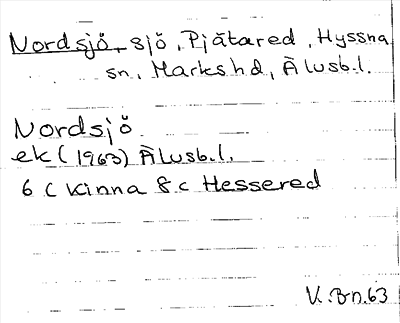 Nordsjö, sjö, Pjätared, Hyssna
sn., Markshd, Älvsb.l.
Nordsjö
ek (1963) Älvsb.l.
6 c Kinna 8 c Hessered
V. Bn. 63